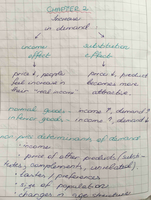 CHAPTER 2
Increase
in demand
income substitution
effect effect
price ↓, people price ↓, product
feel increase in becomes more
their real income attractive
normal goods - income ↑, demand ↑
inferior goods - income ↑, demand ↓
non price determinants of demand
- income
- price of other products (subs-
titutes, complements, unrelated)
- tastes / preferences
- size of population
- changes in age structure